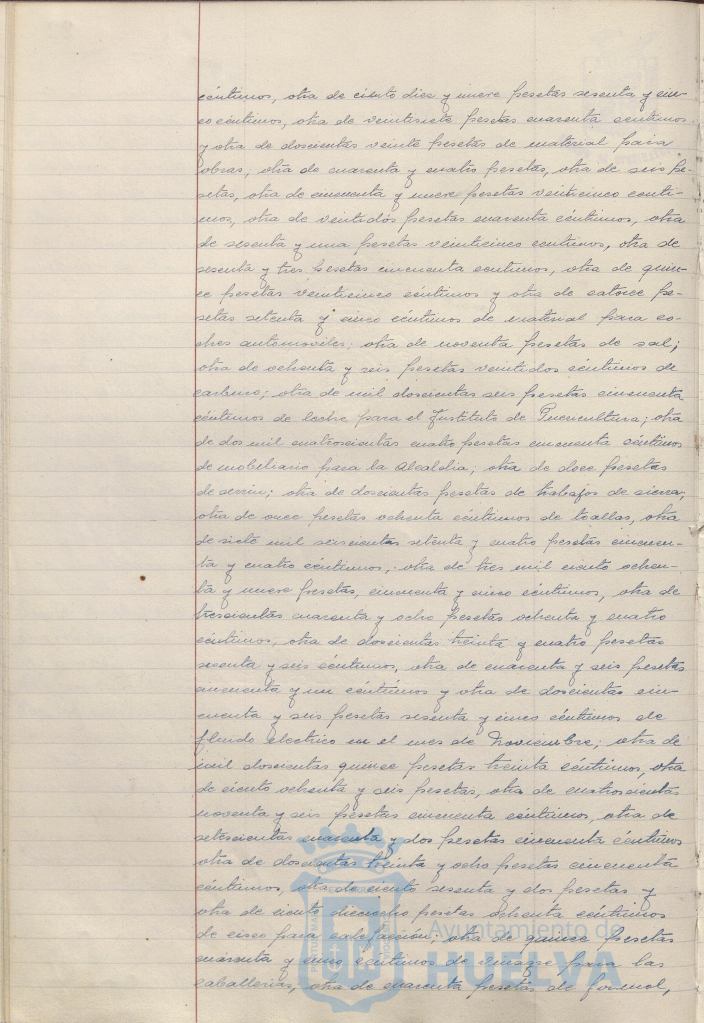 céntimos, otra de ciento diez y nueve pesetas sesenta y cin-
co céntimos, otra de veintisiete pesetas cuarenta centimos
y otra de doscientas veinte pesetas de material para
obras, otra de cuarenta y cuatro pesetas, otra de seis pe-
setas, otra de cincuenta y nueve pesetas veinticinco centi-
mos, otra de veintidós pesetas cuarenta céntimos, otra
de sesenta y una pesetas veinticinco centimos, otra de
sesenta y tres pesetas cincuenta centimos, otra de quin-
ce pesetas veinticinco céntimos y otra de catorce pe-
setas setenta y cinco céntimos de material para co-
ches automoviles; otra de noventa pesetas de sal;
otra de ochenta y seis pesetas veintidos céntimos de
carburo; otra de mil doscientas seis pesetas cincuenta
céntimos de leche para el Instituto de Puericultura; otra
de dos mil cuatrocientas cuatro pesetas cincuenta céntimos
de mobiliario para la Alcaldia; otra de doce pesetas
de serrin; otra de doscientas pesetas de trabajos de sierra,
otra de once pesetas ochenta céntimos de toallas, otra
de siete mil seiscientas setenta y cuatro pesetas cincuen-
ta y cuatro céntimos, otra de tres mil ciento ochen-
ta y nueve pesetas, cincuenta y cinco céntimos, otra de
trescientas cuarenta y ocho pesetas ochenta y cuatro
céntimos, otra de doscientas treinta y cuatro pesetas
sesenta y seis céntimos, otra de cuarenta y seis pesetas
cincuenta y un céntimos y otra de doscientas cin-
cuenta y seis pesetas sesenta y cinco céntimos de
fluido electrico en el mes de Noviembre; otra de
mil doscientas quince pesetas treinta céntimos, otra
de ciento ochenta y seis pesetas, otra de cuatrocientas
noventa y seis pesetas cincuenta céntimos, otra de
setecientas cuarenta y dos pesetas cincuenta céntimos
otra de doscientas treinta y ocho pesetas cincuenta
céntimos, otra de ciento sesenta y dos pesetas y
otra de ciento dieciocho pesetas ochenta céntimos
de cisco para calefacción; otra de quince pesetas
cuarenta y cinco centimos de vinagre para las
caballerias, otra de cuarenta pesetas de formol,
Ayuntamiento de
HUELVA